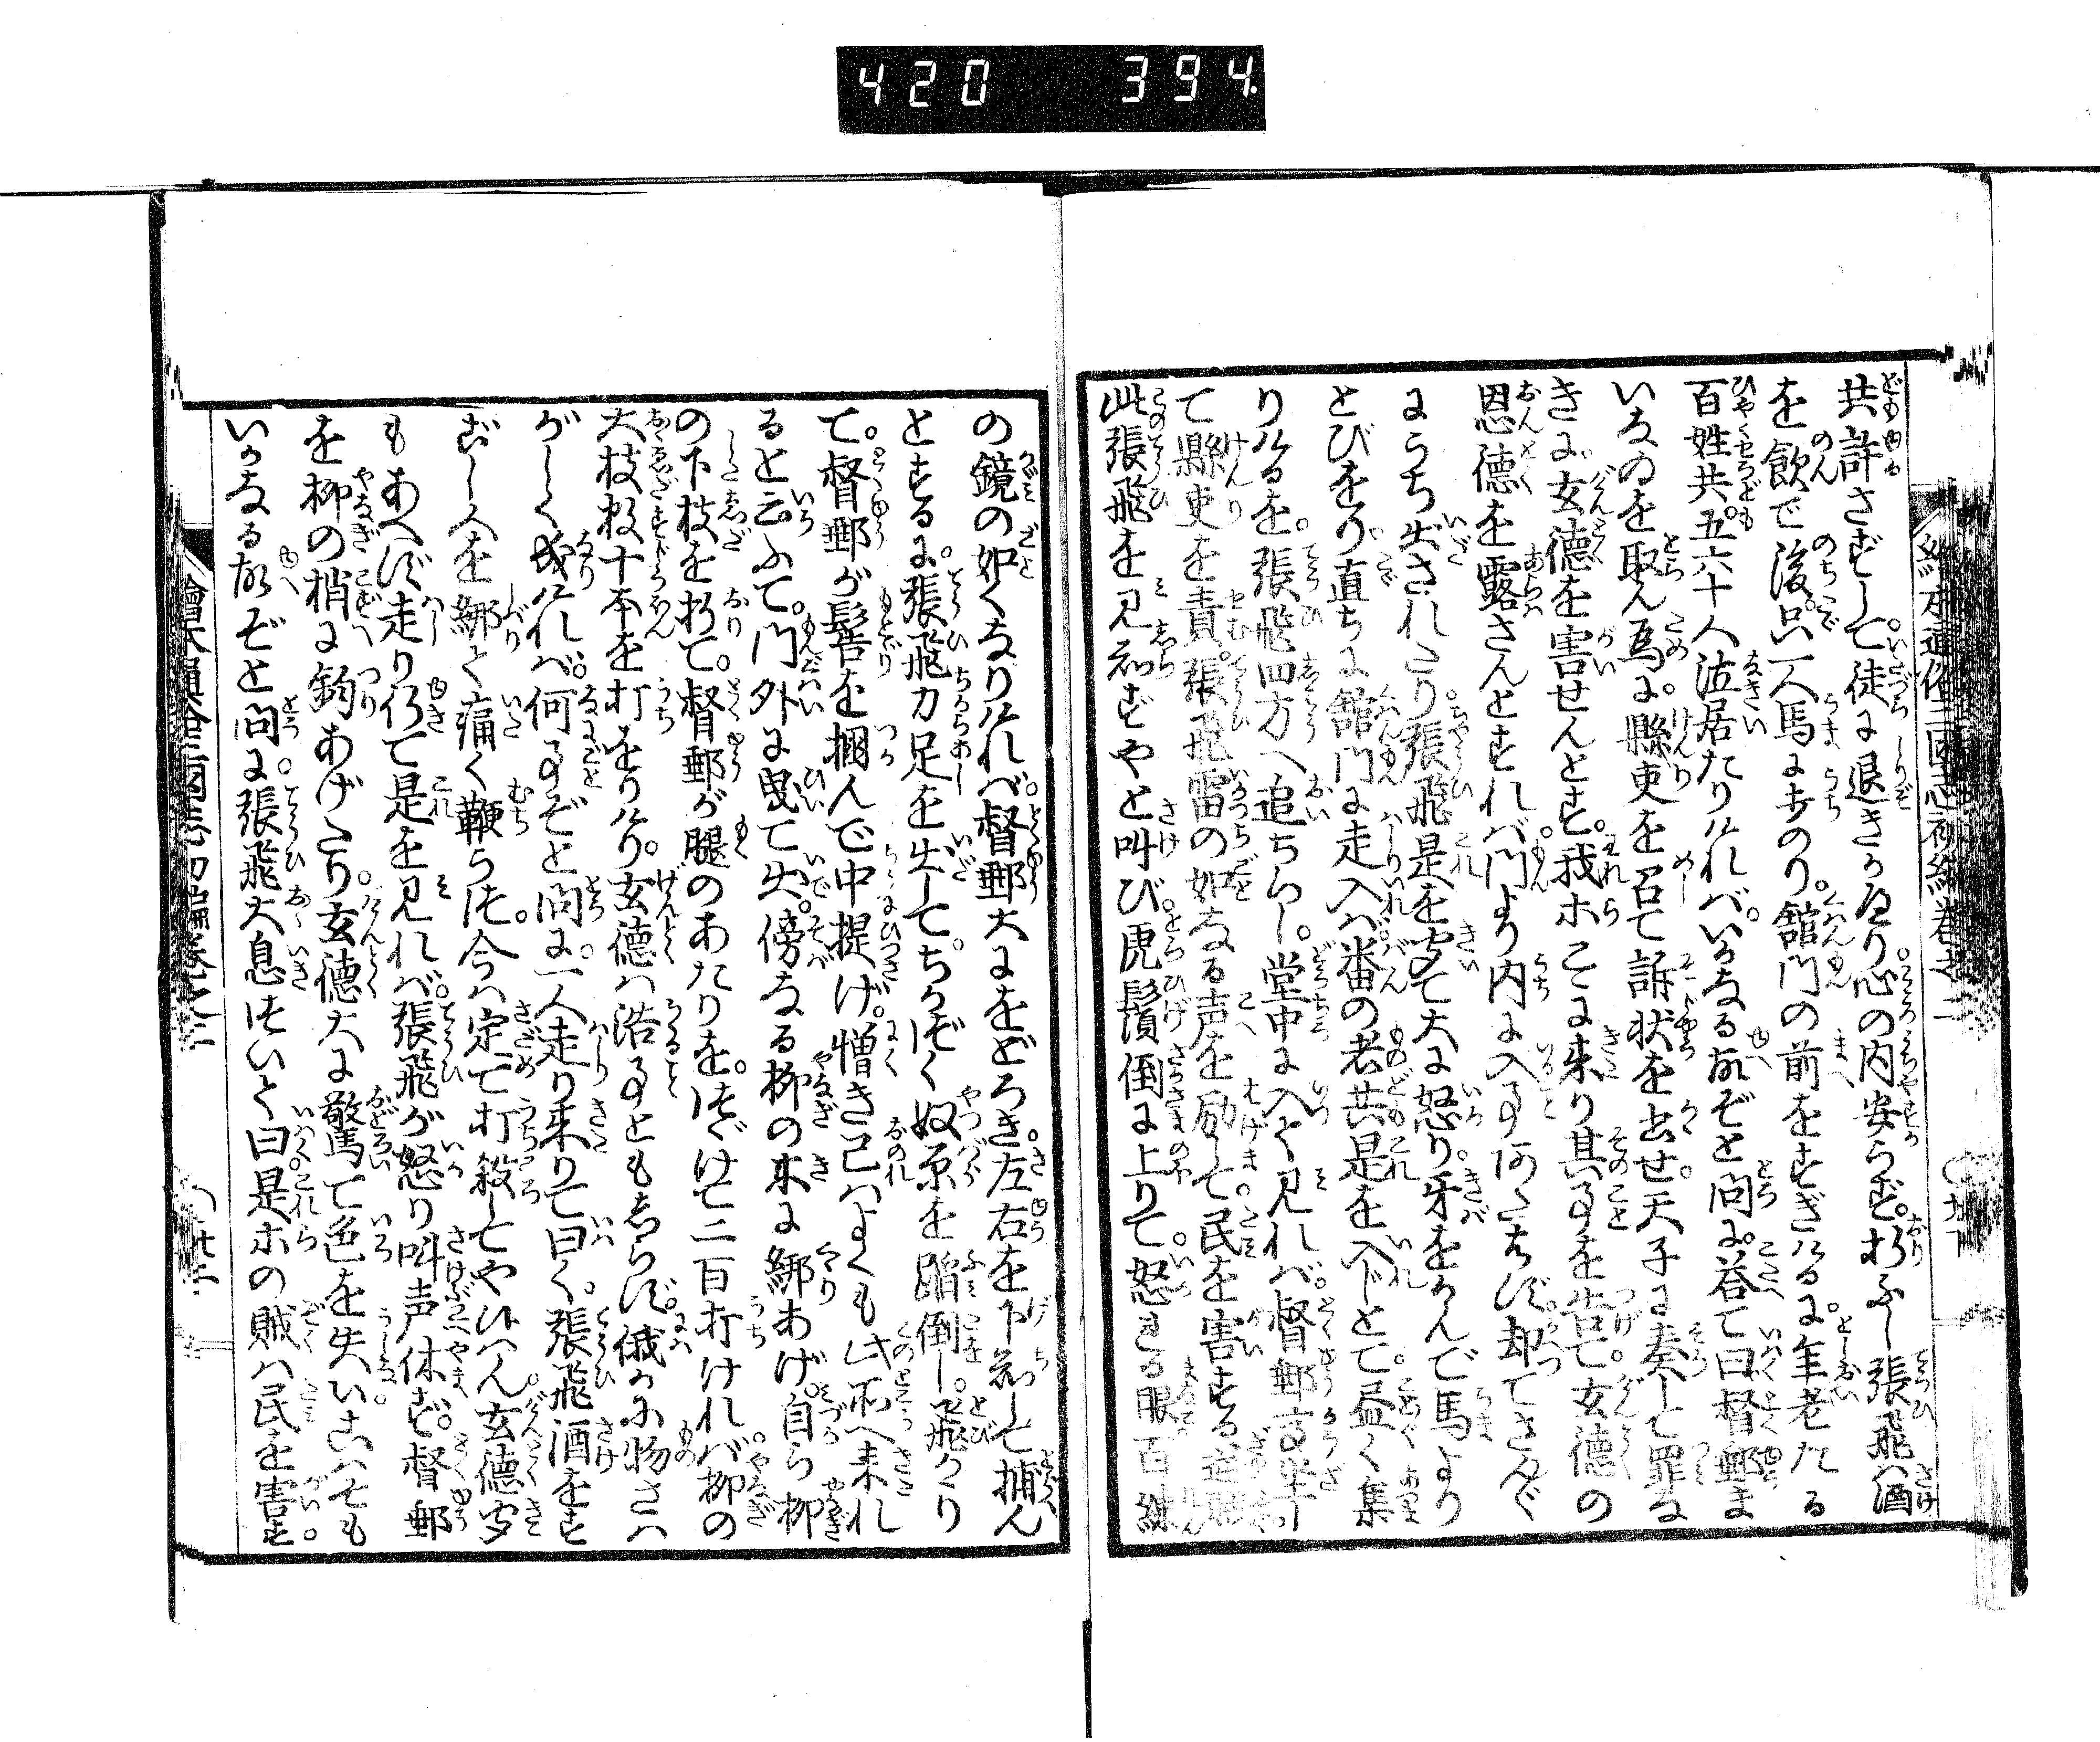 420 394.
共許さずして。徒に退きかへり。心の内安らず。折ふし張飛ハ酒
を飲で後。只一人馬に打のり。館門の前をすぎけるに。年老たる
百姓共。五六十人泣居たりけれバ。いかなる故ぞと問に。答て曰督郵ま
いなゐを取ん為に。縣吏を召て訴状を出せ。天子に奏して罪な
きに玄徳を害せんとす。我ホこゝに来り其事を告て玄徳の
恩徳を露さんとすれバ。門より内に入事あたはず。却てさんぐ
にうち出されたり。張飛是を聞て大に怒り。牙をかんで馬より
とびをり。直ちに館門に走入バ。番の者共是を入じとて。尽く集
りけるを。張飛四方へ追ちらし。堂中に入て見れバ。督郵高坐し
て縣吏を責。張飛雷の如なる声を励して。民を害する逆賊
此張飛を見知ずやと叫び。虎鬚倒に上りて。怒れる眼百練
の鏡の如くなりけれバ。督郵大にをどろき。左右を下知して捕ん
とするに。張飛力足を出して。ちかづく奴原を踏倒し。飛かゝり
て。督郵が髻を掴んで中に提げ。憎き己ハよくも此所へ来れ
ると云ふて。門外に曳て出。傍なる柳の木に綁あげ。自ら柳
の下枝を折て。督郵が腿のあたりを。つゞけて二百打けれバ。柳の
大枝数十本を打をりけり。玄徳ハ浩る事ともしらず。俄かに物さハ
がしく成けれバ。何事ぞと問に。一人走り来りて曰く。張飛酒をす
ごし人を綁て痛く鞭らつ。今ハ定て打殺してや候ハん。玄徳聞
もあへず走り行て是を見れバ。張飛が怒り叫声休ず。督郵
を柳の梢に釣あげたり。玄徳大に驚て色を失い。こハそも
いかなる故ぞと問に。張飛大息ついて曰。是ホの賊ハ民を害す